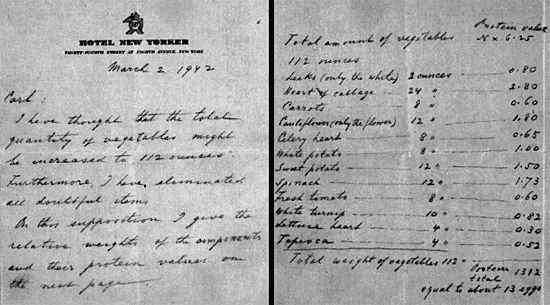 HOTEL NEW YORKER
THIRTY-FOURTH STREET AT EIGHTH AVENUE, NEW YORK
March 2 1942
Carl:
I have thought that the total
quantity of vegetables might
be increased to 112 ounces.
Furthermore, I have eliminated
all doubtful items.
On this supposition I give the
relative weights of the components
and their protein values on
the next page.
Protein value
Total amount of vegetables N x 6.25
112 ounces
Leeks (only the white) 2 ounces 0.80
Heart of cabbage 24 " 2.80
Carrots 8 " 0.60
Cauliflower (only the flower) 12 " 1.80
Celery heart 8 " 0.65
White potatoes 8 " 1.00
Sweet potato 12 " 1.50
Spinach 12 " 1.73
Fresh tomato 8 " 0.60
White turnip 10 " 0.82
Lettuce heart 4 " 0.30
Tapioca 4 " 0.52
Total weight of vegetables 112 " Protein total 1312
equal to about 13 eggs